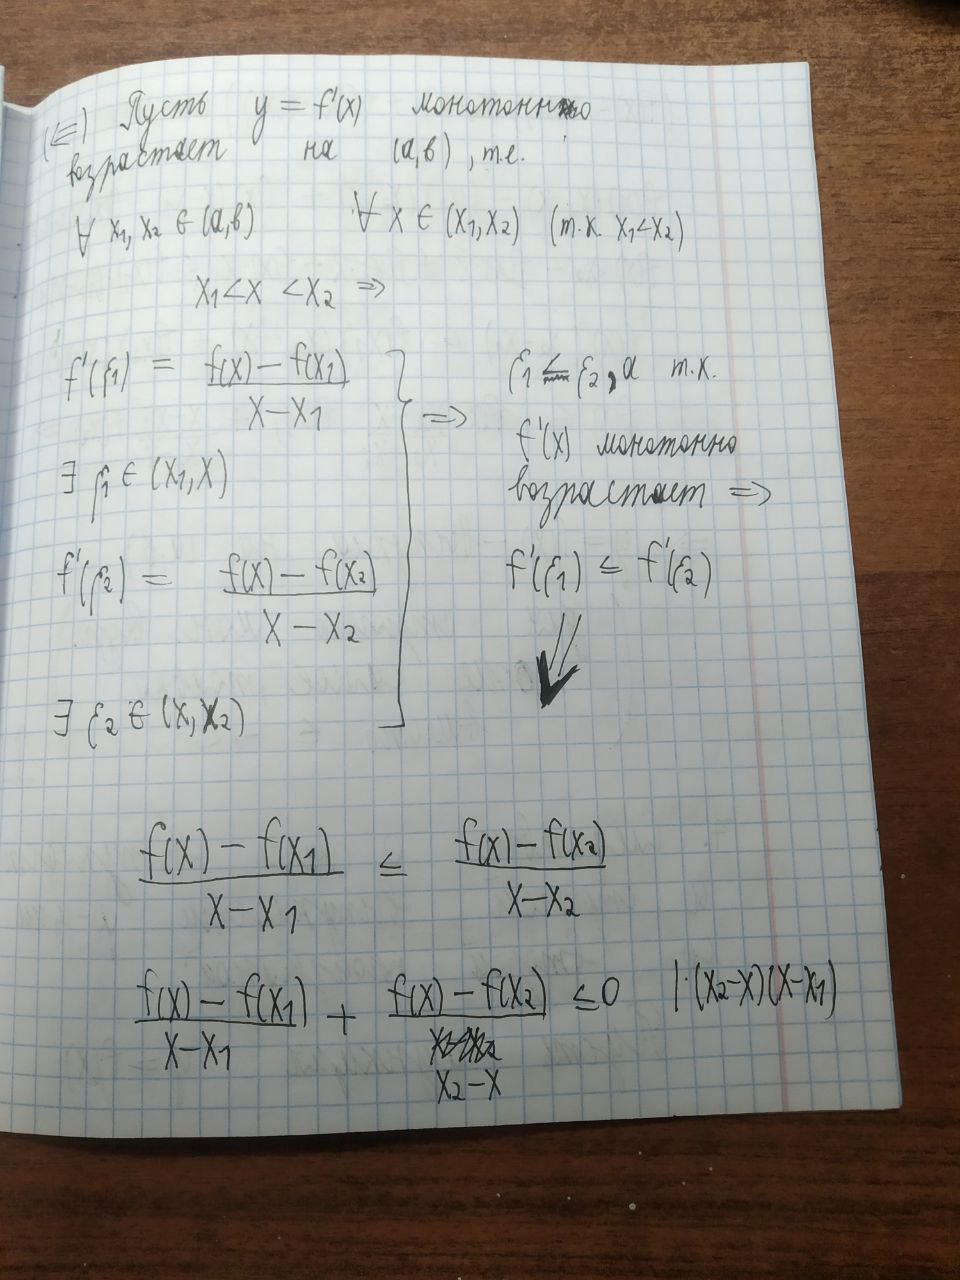 (⇐) Пусть y = f'(x) монотонно
возрастает на (a,b), т.е.
∀ x₁, x₂ ∈ (a,b) ∀ x ∈ (x₁, x₂) (т.к. x₁<x₂)
x₁<x<x₂ ⇒
f'(ξ₁) = (f(x) − f(x₁))/(x−x₁)
∃ ξ₁ ∈ (x₁, x)
f'(ξ₂) = (f(x) − f(x₂))/(x − x₂)
∃ ξ₂ ∈ (x, x₂)
⇒ ξ₁ ≤ ξ₂, а т.к.
f'(x) монотонно
возрастает ⇒
f'(ξ₁) ≤ f'(ξ₂)
⇓
(f(x) − f(x₁))/(x−x₁) ≤ (f(x) − f(x₂))/(x−x₂)
(f(x) − f(x₁))/(x−x₁) + (f(x) − f(x₂))/(x₂−x) ≤0 |·(x₂−x)(x−x₁)